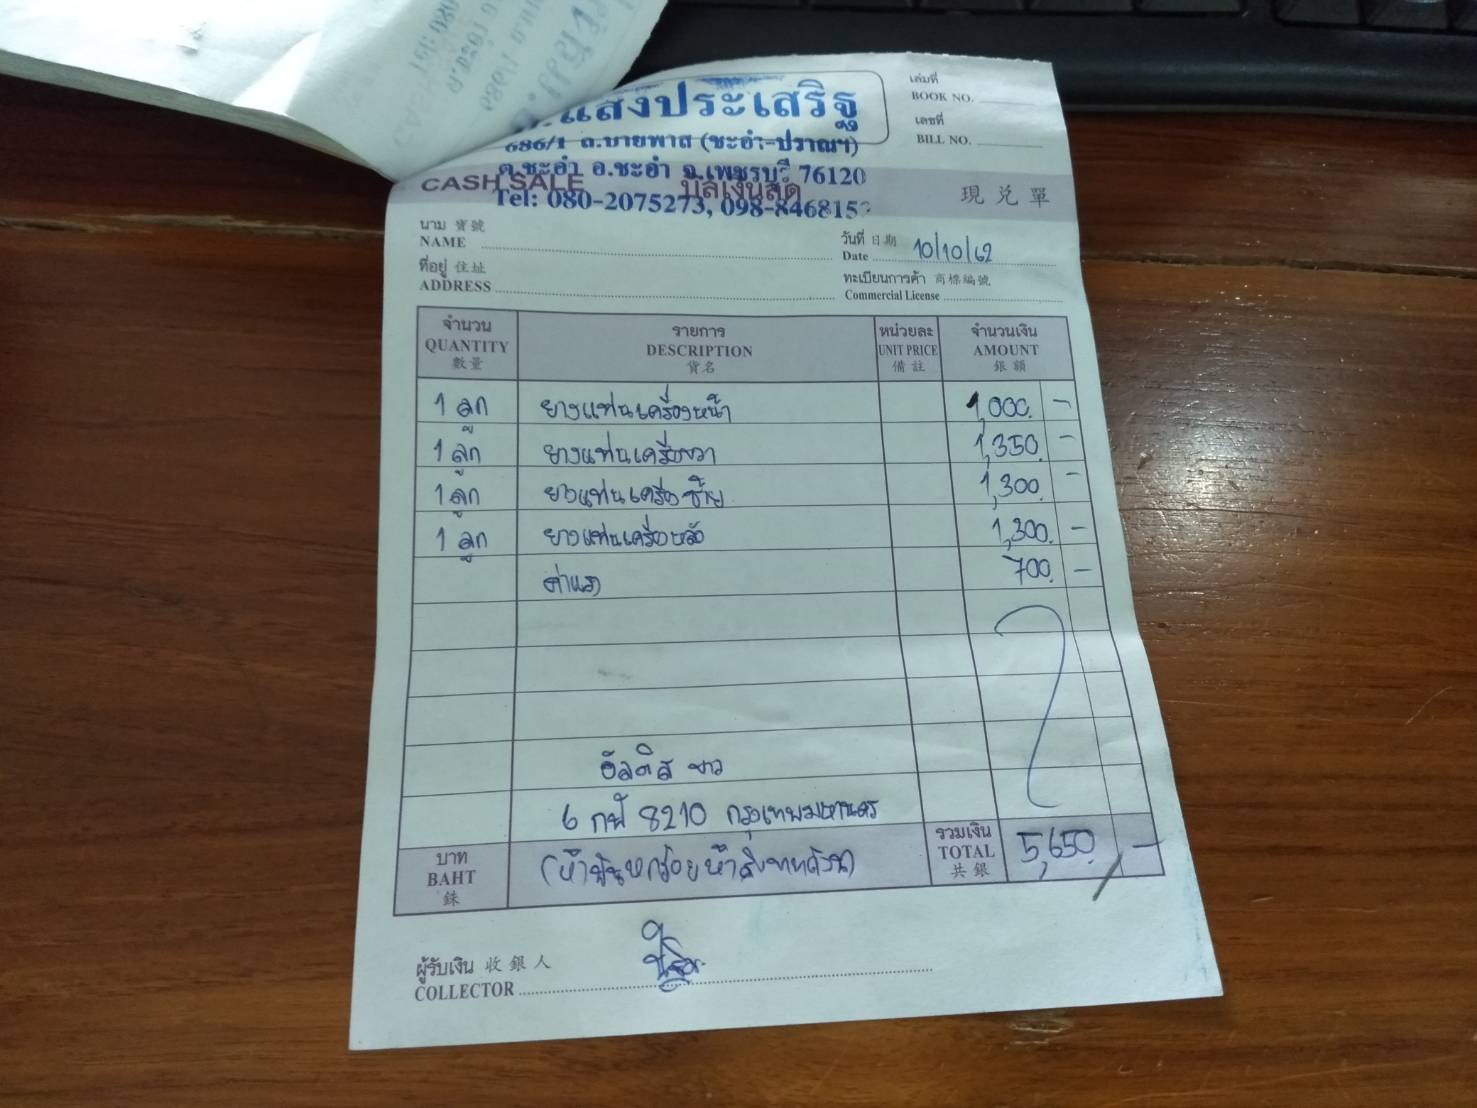 .แสงประเสริฐ
686/1 ถ.บายพาส (ชะอำ-ปราณฯ)
ต.ชะอำ อ.ชะอำ จ.เพชรบุรี 76120
Tel: 080-2075273, 098-846815
เล่มที่
BOOK NO.
เลขที่
BILL NO.
CASH SALE บิลเงินสด 現兌單
นาม 寶號
NAME
วันที่ 日期
Date 10/10/62
ที่อยู่ 住址
ADDRESS
ทะเบียนการค้า 商標編號
Commercial License
จำนวน รายการ หน่วยละ จำนวนเงิน
QUANTITY DESCRIPTION UNIT PRICE AMOUNT
數量 貨名 備註 銀額
1 ลูก ยางแท่นเครื่องหน้า 1,000.-
1 ลูก ยางแท่นเครื่องขวา 1,350.-
1 ลูก ยางแท่นเครื่องซ้าย 1,300.-
1 ลูก ยางแท่นเครื่องหลัง 1,300.-
ค่าแรง 700.-
อัลติส ขาว
6 กฬ 8210 กรุงเทพมหานคร
บาท
BAHT
銖
(ห้าพันหกร้อยห้าสิบบาทถ้วน)
รวมเงิน
TOTAL
共銀
5,650.-
ผู้รับเงิน 收銀人
COLLECTOR